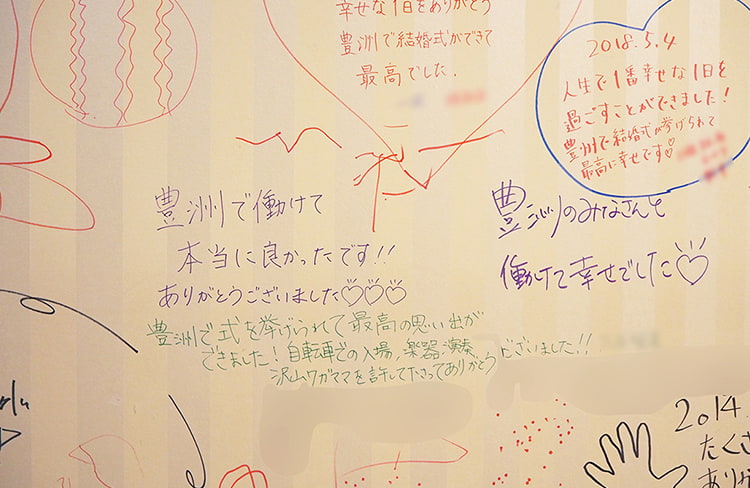 幸せな1日をありがとう
豊洲で結婚式ができて
最高でした.
2018.5.4
人生で1番幸せな1日を
過ごすことができました!
豊洲で結婚式が挙げられて
最高に幸せです♡
豊洲で働けて
本当に良かったです!!
ありがとうございました♡♡♡
豊洲のみなさんと
働けて幸せでした♡
豊洲で式を挙げられて最高の思い出が
できました!自転車での入場,楽器演奏,
沢山ワガママを許して下さってありがとうございました!!
2014.
たくさ
ありが